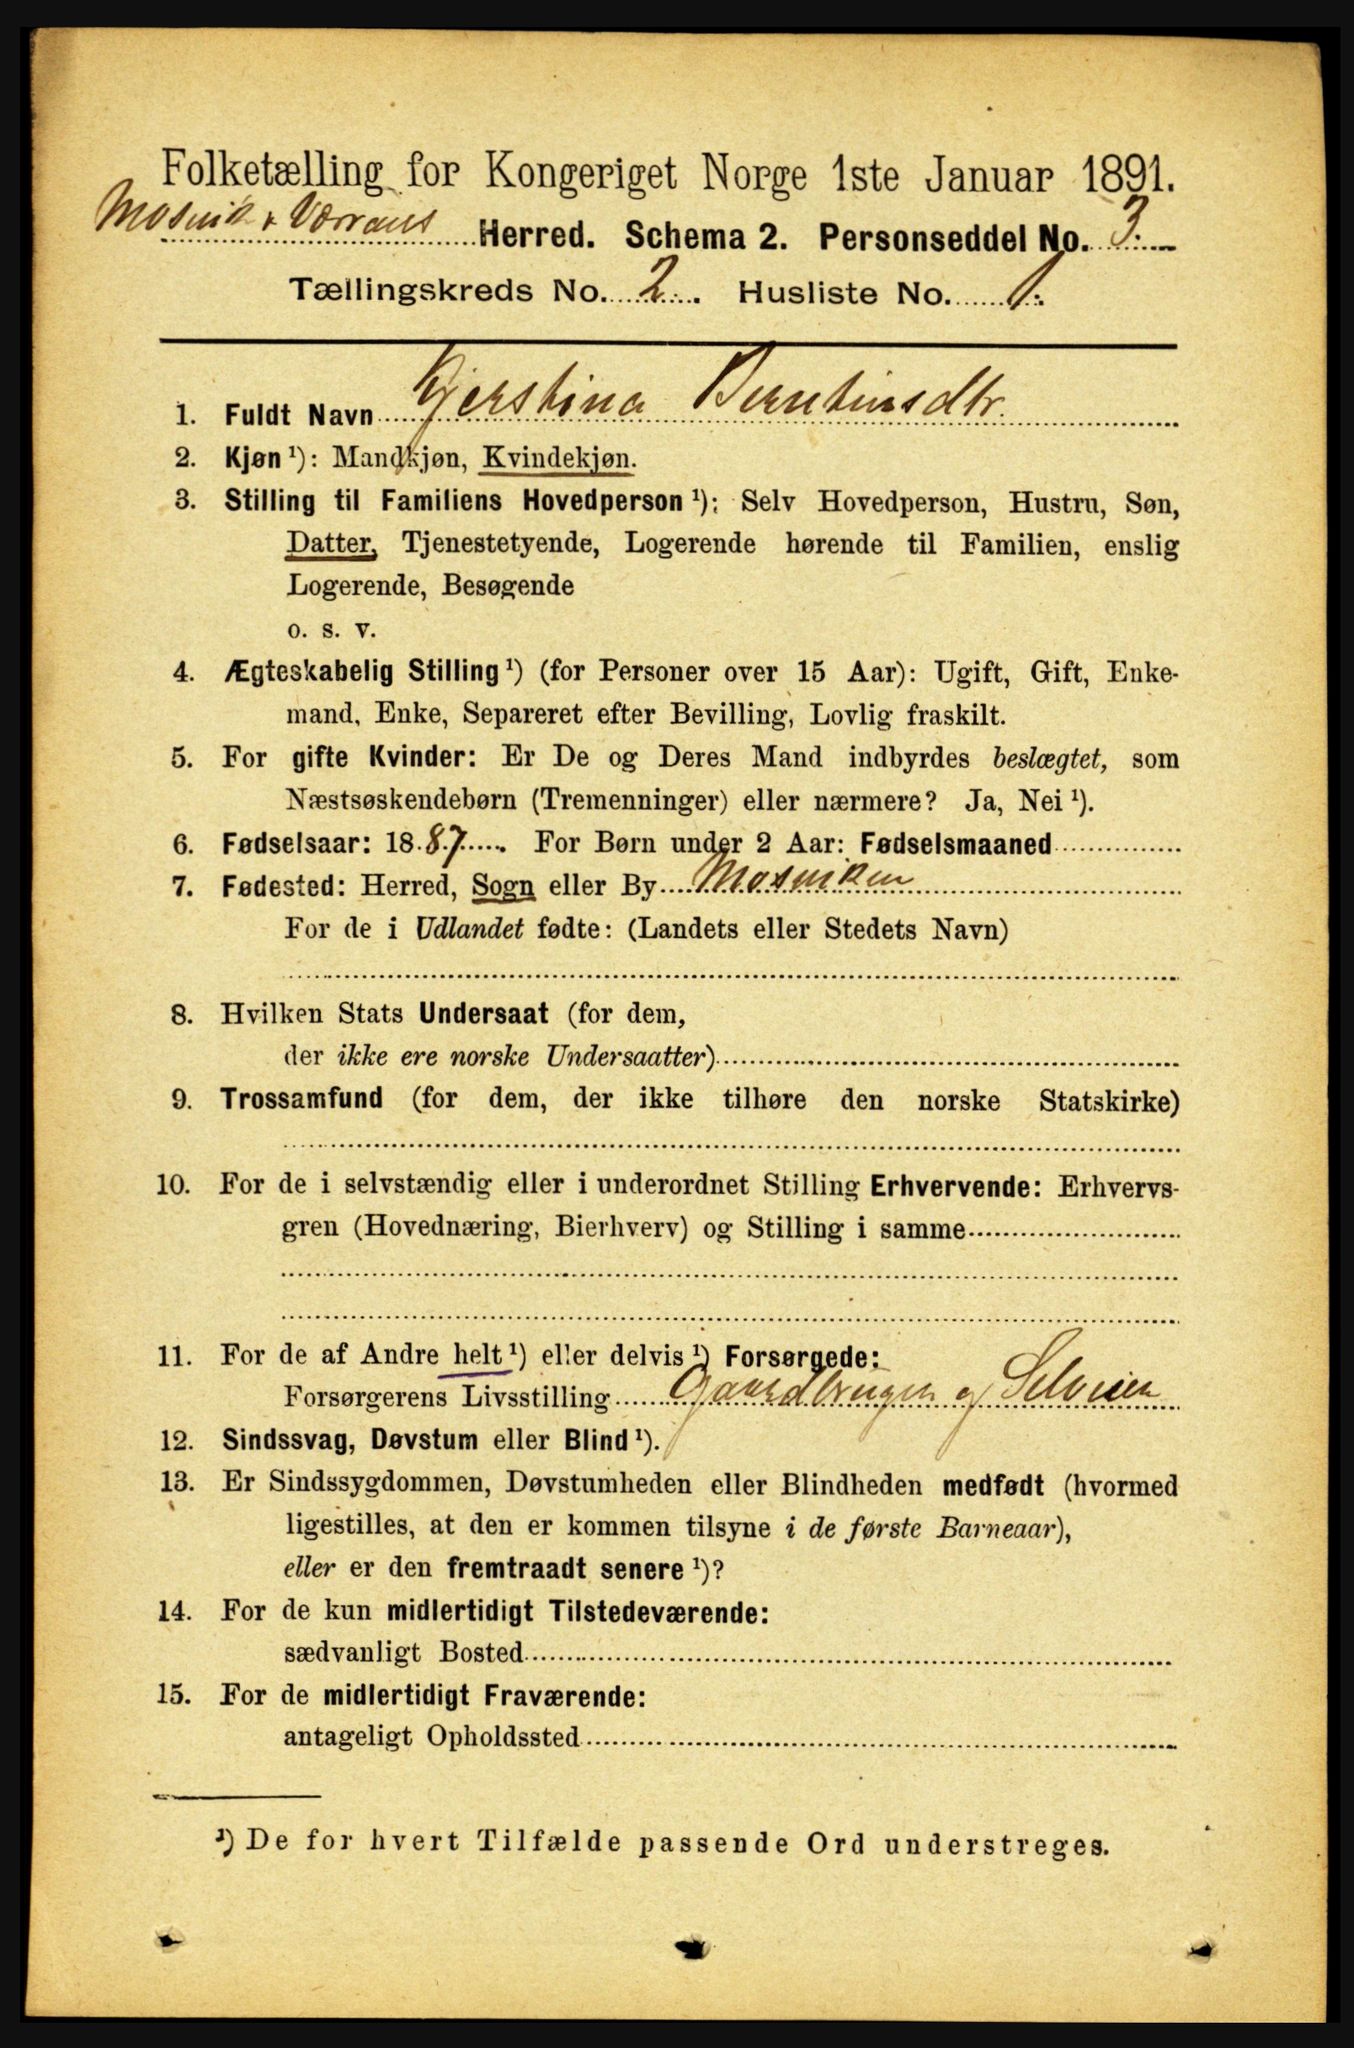 Folketælling for Kongeriget Norge 1ste Januar 1891.
Mosvik & Værrans Herred. Schema 2. Personseddel No. 3.
Tællingskreds No. 2. Husliste No. 1.
1. Fuldt Navn Gjerstina Berntinsdtr.
2. Kjøn ¹): Mandkjøn, Kvindekjøn.
3. Stilling til Familiens Hovedperson ¹): Selv Hovedperson, Hustru, Søn,
Datter, Tjenestetyende, Logerende hørende til Familien, enslig
Logerende, Besøgende
o. s. v.
4. Ægteskabelig Stilling ¹) (for Personer over 15 Aar): Ugift, Gift, Enke-
mand, Enke, Separeret efter Bevilling, Lovlig fraskilt.
5. For gifte Kvinder: Er De og Deres Mand indbyrdes beslægtet, som
Næstsøskendebørn (Tremenninger) eller nærmere? Ja, Nei ¹).
6. Fødselsaar: 1887. For Børn under 2 Aar: Fødselsmaaned
7. Fødested: Herred, Sogn eller By Mosviken
For de i Udlandet fødte: (Landets eller Stedets Navn)
8. Hvilken Stats Undersaat (for dem,
der ikke ere norske Undersaatter)
9. Trossamfund (for dem, der ikke tilhøre den norske Statskirke)
10. For de i selvstændig eller i underordnet Stilling Erhvervende: Erhvervs-
gren (Hovednæring, Bierhverv) og Stilling i samme
11. For de af Andre helt ¹) eller delvis ¹) Forsørgede:
Forsørgerens Livsstilling Gaardbruger og Selveier
12. Sindssvag, Døvstum eller Blind ¹).
13. Er Sindssygdommen, Døvstumheden eller Blindheden medfødt (hvormed
ligestilles, at den er kommen tilsyne i de første Barneaar),
eller er den fremtraadt senere ¹)?
14. For de kun midlertidigt Tilstedeværende:
sædvanligt Bosted
15. For de midlertidigt Fraværende:
antageligt Opholdssted
¹) De for hvert Tilfælde passende Ord understreges.